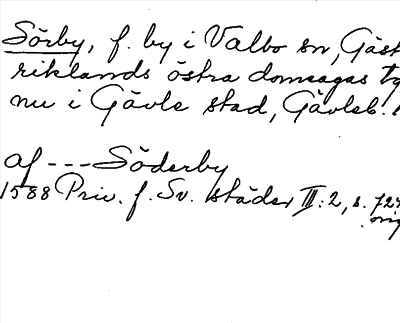 Sörby, f. by i Valbo sn, Gäst
riklands östra domsagas
nu i Gävle stad, Gävleb.
af --- Söderby
1588 Priv. f. Sv. städer III:2, s. 724
orig